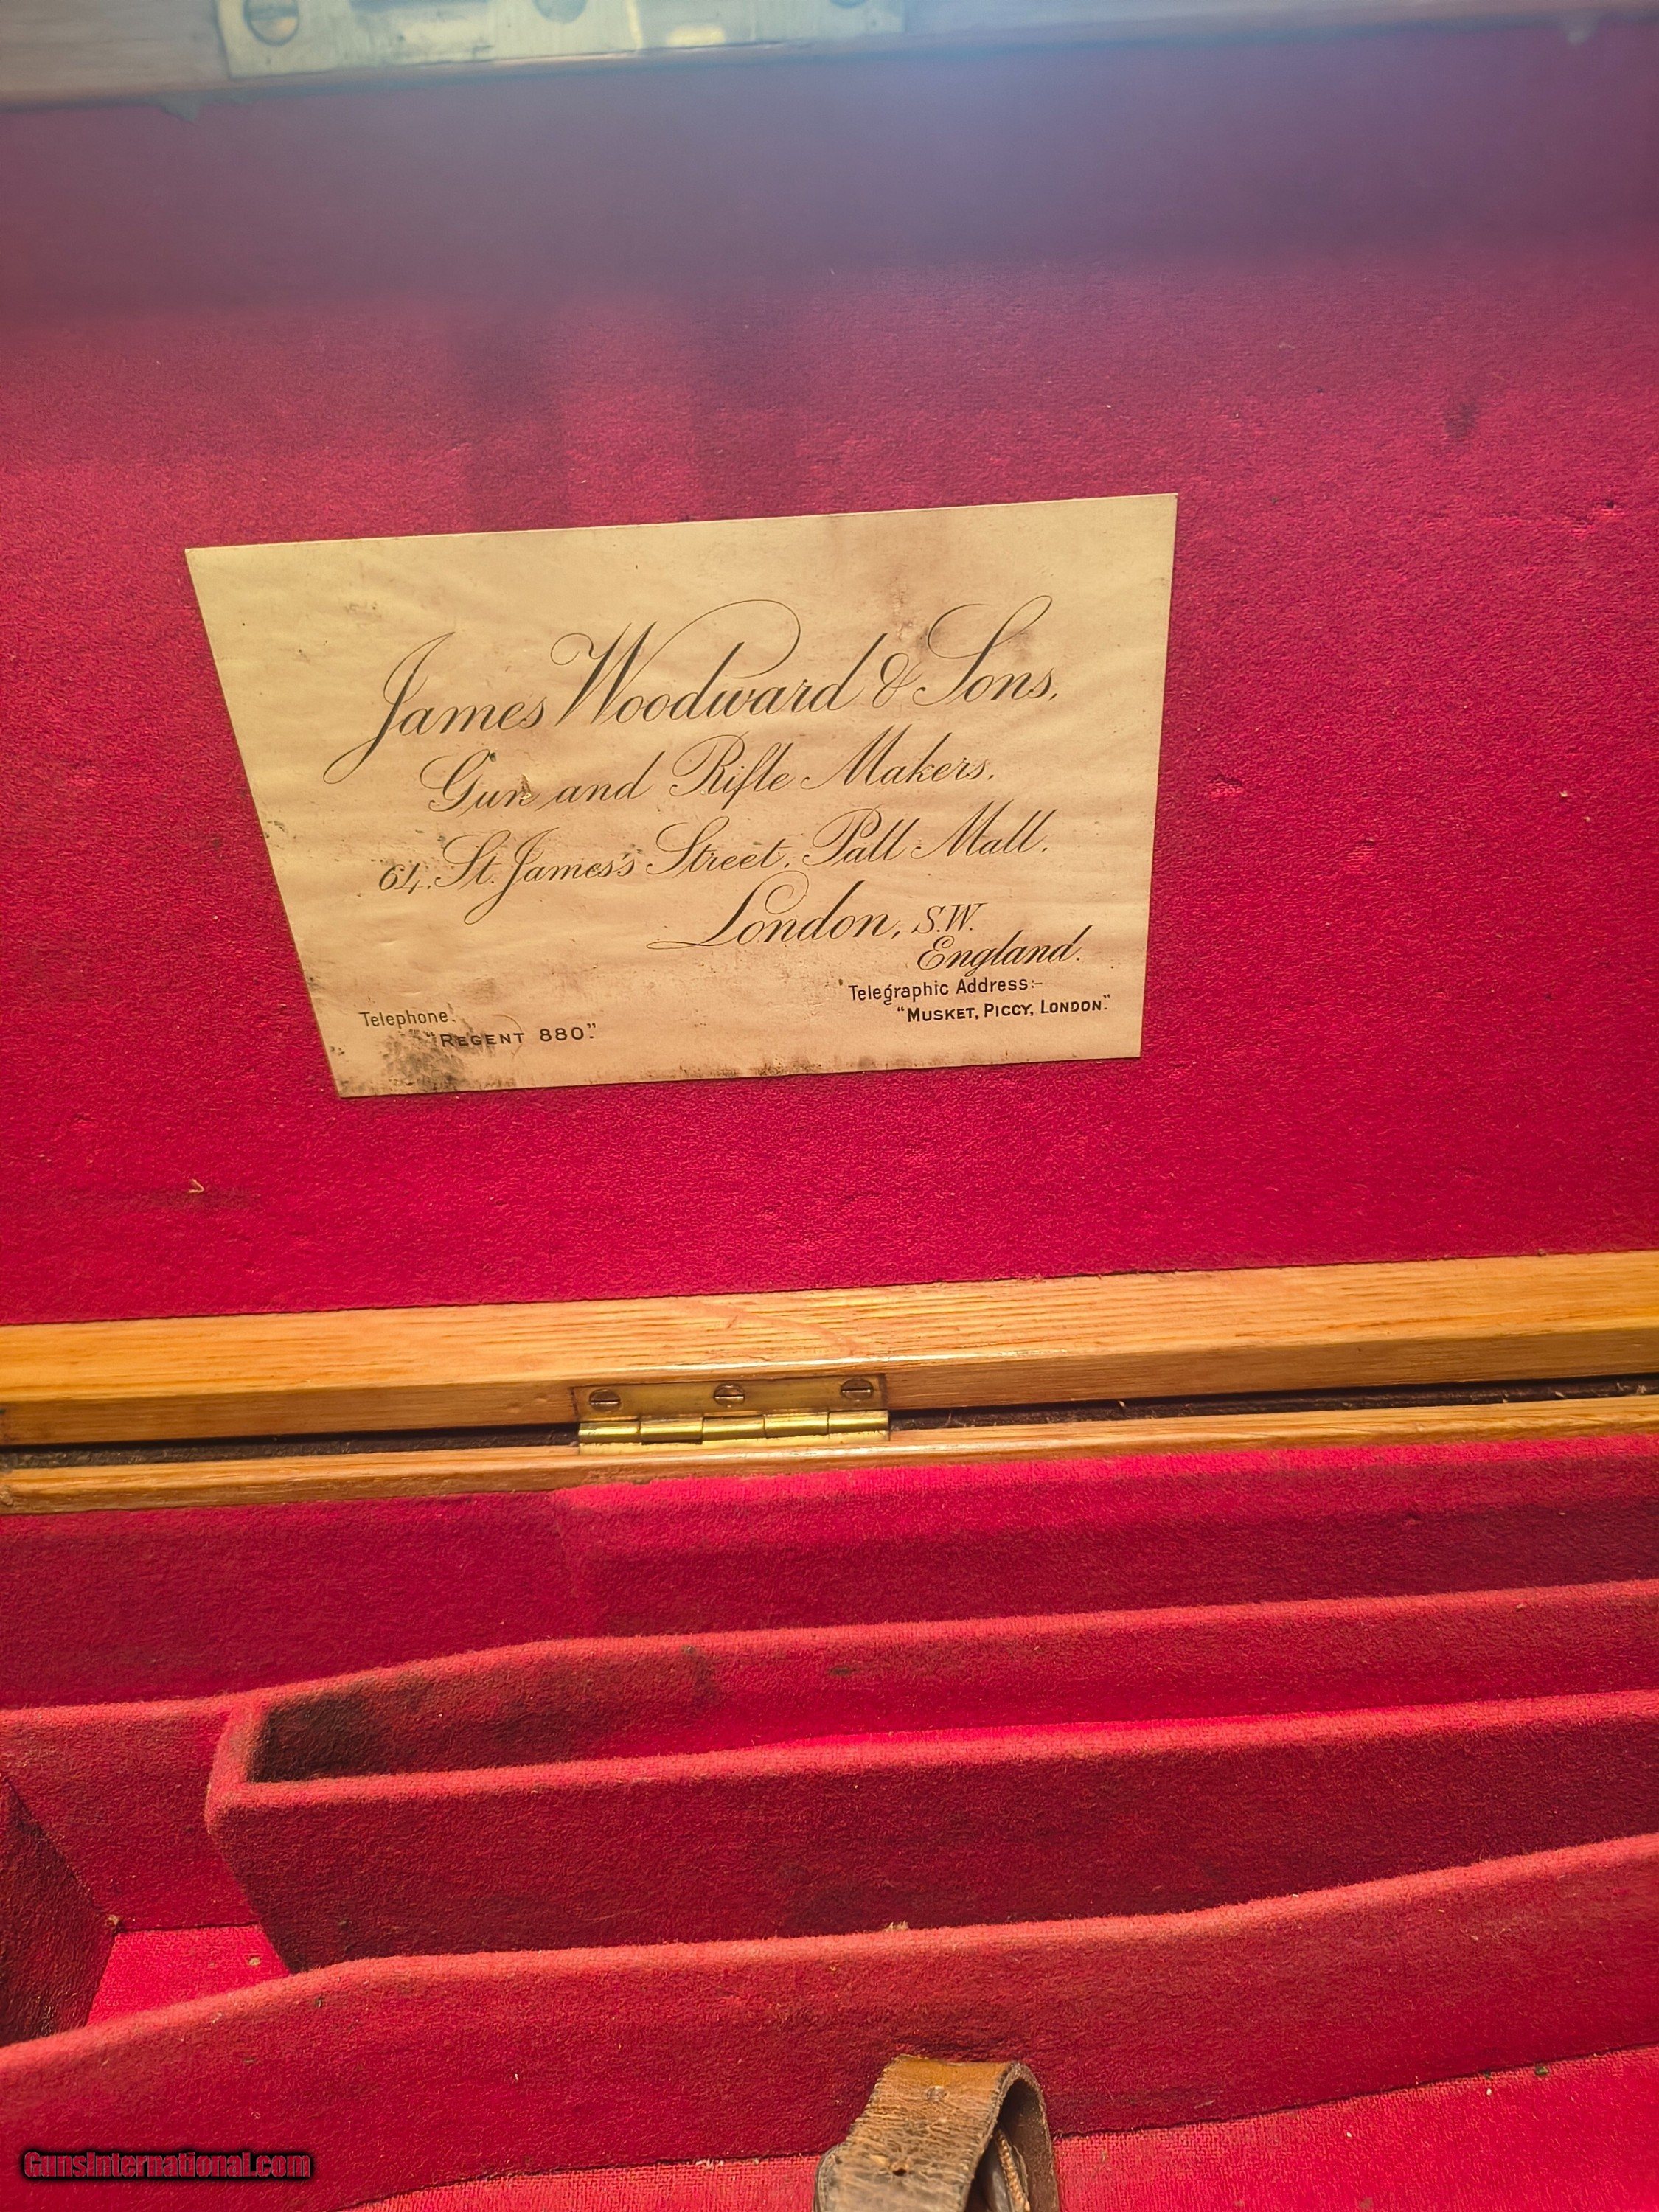 James Woodward & Sons,
Gun and Rifle Makers.
64, St. James's Street, Pall Mall.
London, S.W.
England.
Telegraphic Address:-
"MUSKET, PICCY, LONDON."
Telephone.
"REGENT 880."
GunsInternational.com